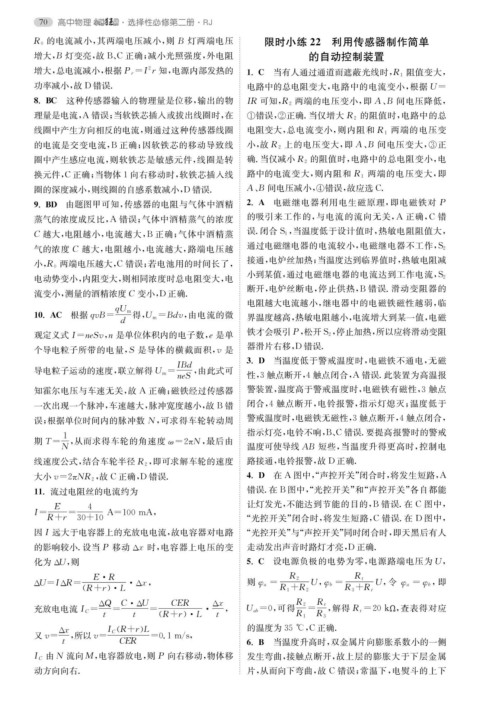 70 高中物理 · 选择性必修第二册 · RJ
R₁ 的电流减小,其两端电压减小,则 B 灯两端电压
增大,B 灯变亮,故 B、C 正确;减小光照强度,外电阻
增大,总电流减小,根据 Pᵣ=I²r 知,电源内部发热的
功率减小,故 D 错误.
8. BC 这种传感器输入的物理量是位移,输出的物
理量是电流,A 错误;当软铁芯插入或拔出线圈时,在
线圈中产生方向相反的电流,则通过这种传感器线圈
的电流是交变电流,B 正确;因软铁芯的移动导致线
圈中产生感应电流,则软铁芯是敏感元件,线圈是转
换元件,C 正确;当物体 1 向右移动时,软铁芯插入线
圈的深度减小,则线圈的自感系数减小,D 错误.
9. BD 由题图甲可知,传感器的电阻与气体中酒精
蒸气的浓度成反比,A 错误;气体中酒精蒸气的浓度
C 越大,电阻越小,电流越大,B 正确;气体中酒精蒸
气的浓度 C 越大,电阻越小,电流越大,路端电压越
小,R₂ 两端电压越大,C 错误;若电池用的时间长了,
电动势变小,内阻变大,则相同浓度时总电阻变大,电
流变小,测量的酒精浓度 C 变小,D 正确.
10. AC 根据 qvB=qUₘ/d 得,Uₘ=Bdv,由电流的微
观定义式 I=neSv,n 是单位体积内的电子数,e 是单
个导电粒子所带的电量,S 是导体的横截面积,v 是
导电粒子运动的速度,联立解得 Uₘ=IBd/neS,由此式可
知霍尔电压与车速无关,故 A 正确;磁铁经过传感器
一次出现一个脉冲,车速越大,脉冲宽度越小,故 B 错
误;根据单位时间内的脉冲数 N,可求得车轮转动周
期 T=1/N,从而求得车轮的角速度 ω=2πN,最后由
线速度公式,结合车轮半径 R₂,即可求解车轮的速度
大小 v=2πNR₂,故 C 正确,D 错误.
11. 流过电阻丝的电流约为
I=E/(R+r)=4/(30+10) A=100 mA,
因 I 远大于电容器上的充放电电流,故电容器对电路
的影响较小. 设当 P 移动 Δx 时,电容器上电压的变
化为 ΔU,则
ΔU=IΔR=E·R/((R+r)·L)·Δx,
充放电电流 I_C=ΔQ/t=C·ΔU/t=CER/((R+r)·L)·Δx/t,
又 v=Δx/t,所以 v=I_C(R+r)L/CER=0.1 m/s,
I_C 由 N 流向M,电容器放电,则 P 向右移动,物体移
动方向向右.
限时小练 22 利用传感器制作简单
的自动控制装置
1. C 当有人通过通道而遮蔽光线时,R₁ 阻值变大,
电路中的总电阻变大,电路中的电流变小,根据 U=
IR 可知,R₂ 两端的电压变小,即 A、B 间电压降低,
①错误,②正确. 当仅增大 R₂ 的阻值时,电路中的总
电阻变大,总电流变小,则内阻和 R₁ 两端的电压变
小,故 R₂ 上的电压变大,即 A、B 间电压变大,③正
确. 当仅减小 R₂ 的阻值时,电路中的总电阻变小,电
路中的电流变大,则内阻和 R₁ 两端的电压变大,即
A、B 间电压减小,④错误,故应选 C.
2. A 电磁继电器利用电生磁原理,即电磁铁对 P
的吸引来工作的,与电流的流向无关,A 正确,C 错
误. 闭合 S₁,当温度低于设计值时,热敏电阻阻值大,
通过电磁继电器的电流较小,电磁继电器不工作,S₂
接通,电炉丝加热;当温度达到临界值时,热敏电阻减
小到某值,通过电磁继电器的电流达到工作电流,S₂
断开,电炉丝断电,停止供热,B 错误. 滑动变阻器的
电阻越大电流越小,继电器中的电磁铁磁性越弱,临
界温度越高,热敏电阻越小,电流增大到某一值,电磁
铁才会吸引 P,松开 S₂,停止加热,所以应将滑动变阻
器滑片右移,D 错误.
3. D 当温度低于警戒温度时,电磁铁不通电,无磁
性,3 触点断开,4 触点闭合,A 错误. 此装置为高温报
警装置,温度高于警戒温度时,电磁铁有磁性,3 触点
闭合,4 触点断开,电铃报警,指示灯熄灭;温度低于
警戒温度时,电磁铁无磁性,3 触点断开,4 触点闭合,
指示灯亮,电铃不响,B、C 错误. 要提高报警时的警戒
温度可使导线 AB 短些,当温度升得更高时,控制电
路接通,电铃报警,故 D 正确.
4. D 在 A 图中,“声控开关”闭合时,将发生短路,A
错误. 在 B 图中,“光控开关”和“声控开关”各自都能
让灯发光,不能达到节能的目的,B 错误. 在 C 图中,
“光控开关”闭合时,将发生短路,C 错误. 在 D 图中,
“光控开关”与“声控开关”同时闭合时,即天黑后有人
走动发出声音时路灯才亮,D 正确.
5. C 设电源负极的电势为零,电源路端电压为 U,
则 φₐ=R₂/(R₁+R₂)U,φ_b=Rₜ/(R₃+Rₜ)U,令 φₐ=φ_b,即
U_ab=0,可得 R₂/R₁=Rₜ/R₃,解得 Rₜ=20 kΩ,查表得对应
的温度为 35 ℃,C 正确.
6. B 当温度升高时,双金属片向膨胀系数小的一侧
发生弯曲,接触点断开,故上层的膨胀大于下层金属
片,从而向下弯曲,故 C 错误;常温下,电熨斗的上下